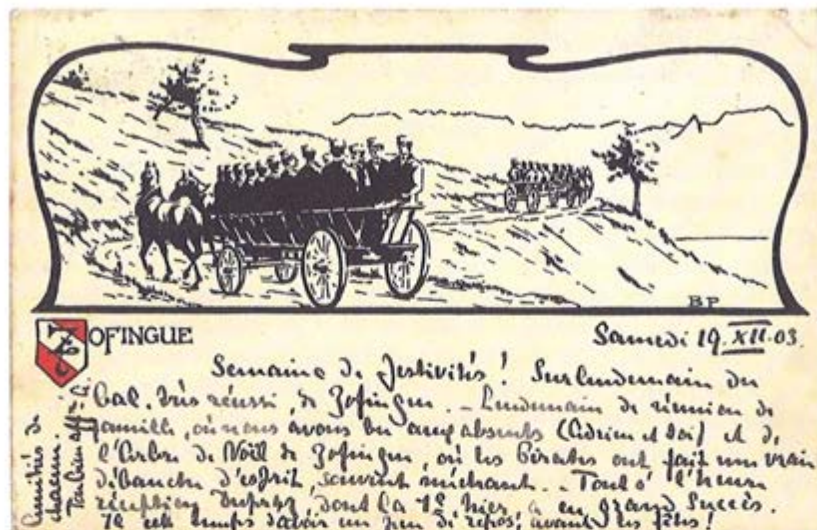 BP
ZOFINGUE
Samedi 19.XII.03.
Semaine de festivités ! Surlendemain du
bal, très réussi, de Zofingue. - Lendemain de réunion de
famille, où nous avons bu aux absents (Adrien et toi) et de
l'Arbre de Noël de Zofingue, où les Pirates ont fait une vraie
débauche d'esprit, souvent méchant. - Tout à l'heure
réception Dupraz, dont la 1e, hier, a eu grand succès.
Il est temps d'avoir un peu de repos, avant les fêtes !
Amitiés de
chacun.
Ton bien aff.